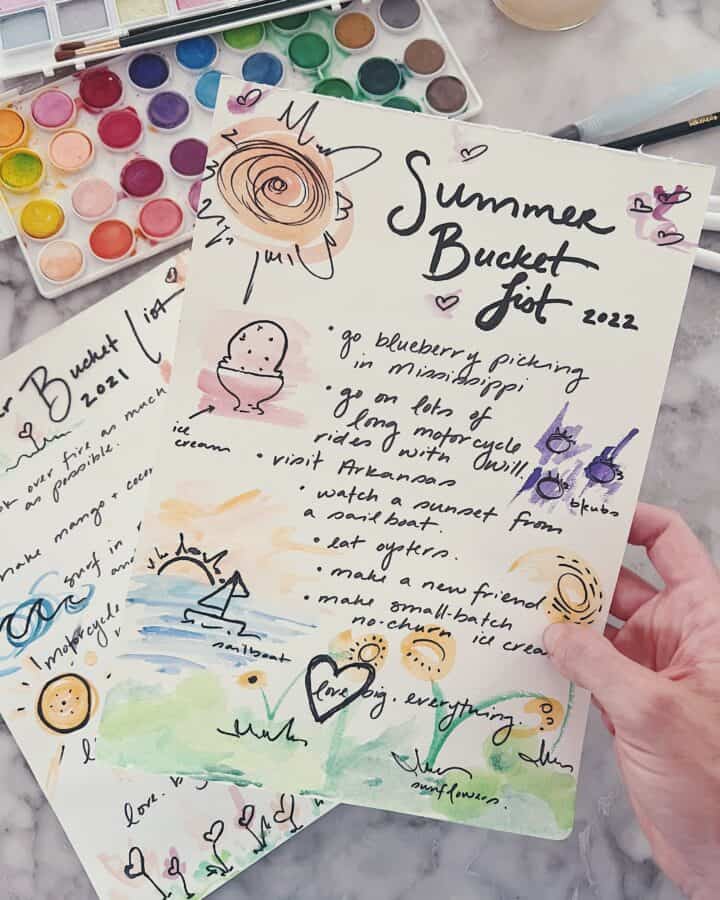 Summer
Bucket
List 2022
• go blueberry picking
in Mississippi
• go on lots of
long motorcycle
rides with Will
• visit Arkansas
• watch a sunset from
a sailboat.
• eat oysters.
• make a new friend
• make small-batch
no-churn ice crea
love big. everything.
ice
cream
blubs
sailboat
sunflowers.
Bucket List
2021
over fire as much
as possible.
make mango +
surf in
motorcycle
love.